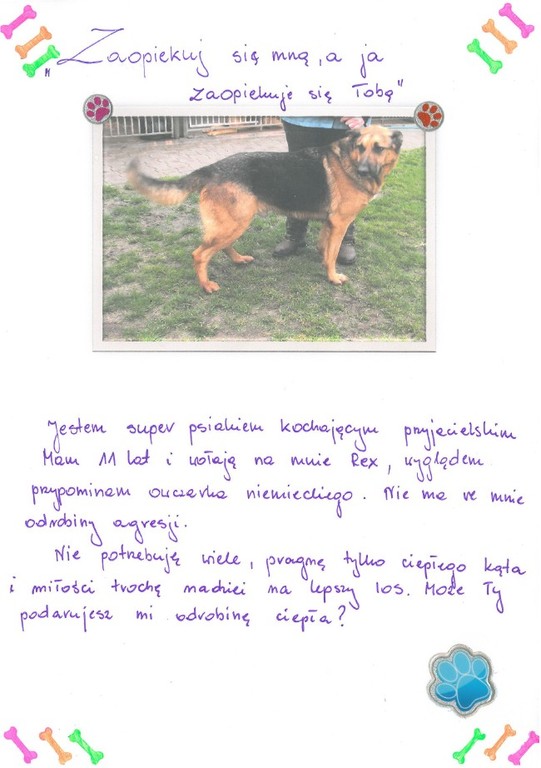 "Zaopiekuj się mną, a ja
zaopiekuje się Tobą"
Jestem super psiakiem kochającym przyjacielskim
Mam 11 lat i wołają na mnie Rex, wyglądem
przypominam owczarka niemieckiego. Nie ma we mnie
odrobiny agresji.
Nie potrzebuję wiele, pragnę tylko ciepłego kąta
i miłości trochę nadziei na lepszy los. Może Ty
podarujesz mi odrobinę ciepła?